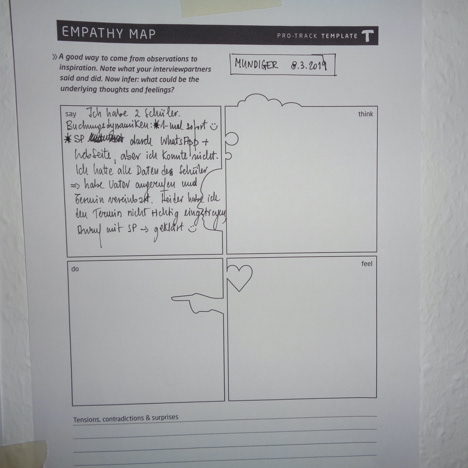 EMPATHY MAP
PRO-TRACK TEMPLATE T
» A good way to come from observations to
inspiration. Note what your interviewpartners
said and did. Now infer: what could be the
underlying thoughts and feelings?
MÜNDIGER 8.3.2019
say Ich habe 2 Schüler.
Buchungsdynamiken: 1 mal sofort
SP durch WhatsApp +
Webseite, aber ich konnte nicht.
Ich hatte alle Daten des Schüler
=> habe Vater angerufen und
Termin vereinbart. Leider habe ich
den Termin nicht richtig eingetragen
Anruf mit SP → geklärt
think
do
feel
Tensions, contradictions & surprises